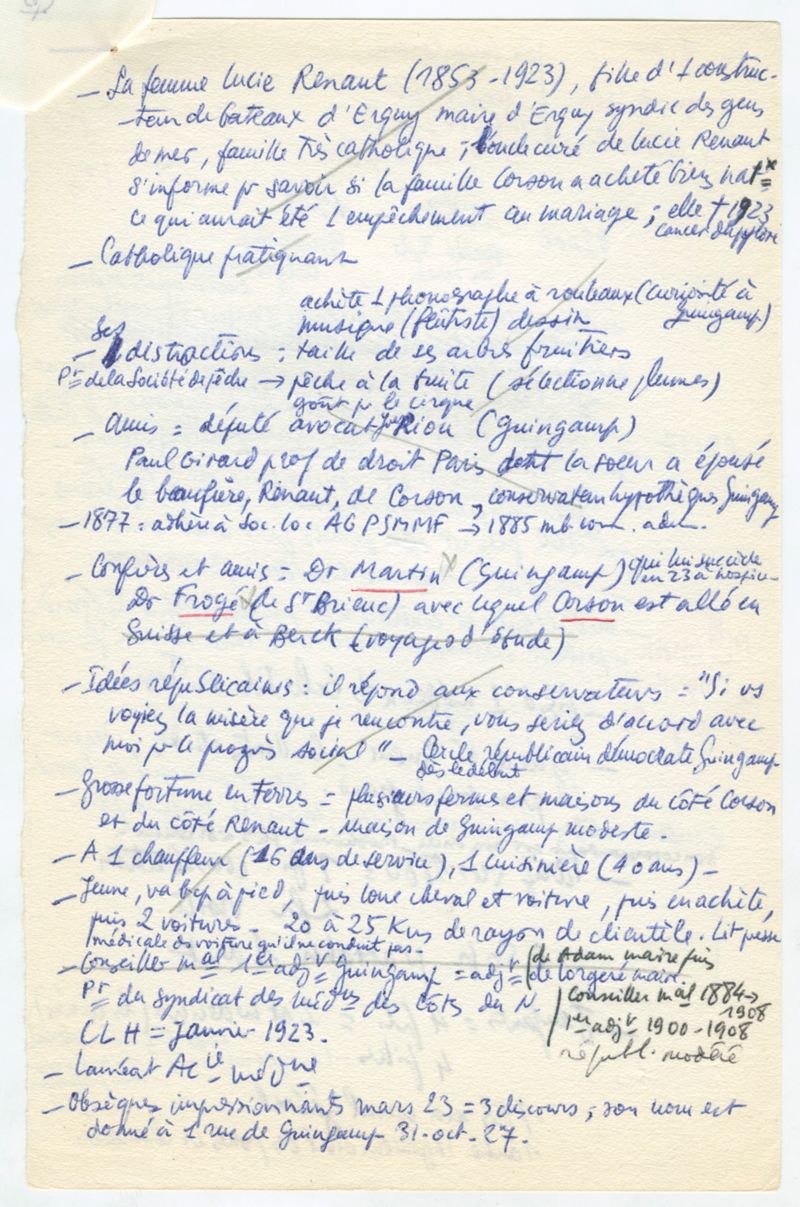 – Sa femme Lucie Renaut (1853-1923), fille d'1 construc-
-teur de bateaux d'Erquy maire d'Erquy syndic des gens
de mer, famille très catholique ; l'oncle curé de Lucie Renaut
s'informe pr savoir si la famille Corson a acheté biens natx
ce qui aurait été 1 empêchement au mariage ; elle † 1923
cancer
– Catholique pratiquant
achète 1 phonographe à rouleaux (curiosité à
Guingamp)
musique (flûtiste) dessin
– Ses distractions : taille de ses arbres fruitiers
Pt de la Société de pêche → pêche à la truite (sélectionne plumes)
goût pr le cirque
– Amis = député avocat Riou (Guingamp)
Paul Girard prof de droit Paris dont la soeur a épousé
le beaufrère, Renaut, de Corson, conservateur hypothèques Guingamp
– 1877 : adhère à Soc. loc AGPSMMF → 1885 mb com. adm.
– Confrères et amis = Dr Martin (Guingamp) qui lui succède
en 23 à hospice
Dr Frogé (de St Brieuc) avec lequel Corson est allé en
Suisse et à Berck (voyages d'étude)
– Idées républicaines : il répond aux conservateurs = "Si vs
voyiez la misère que je rencontre, vous seriez d'accord avec
moi pr le progrès social" – Cercle républicain démocrate Guingamp
dès le début
– Grosse fortune en terres = plusieurs fermes et maisons du côté Corson
et du côté Renaut – maison de Guingamp modeste.
– A 1 chauffeur (16 ans de service), 1 cuisinière (40 ans) –
– Jeune, va bcp à pied, puis loue cheval et voiture, puis en achète,
puis 2 voitures – 20 à 25 Kms de rayon de clientèle. Lit presse
médicale ds voiture qu'il ne conduit pas.
– Conseiller mal 1er adjt Guingamp = adjt de Adam maire puis
de Lorgeré maire
Pt du Syndicat des médns des Côtes du N.
conseiller mal 1884 → 1908
1er adjt 1900-1908
républ. modéré
CLH = Janvier 1923.
– Lauréat Acie médne
– Obsèques impressionnants mars 23 = 3 discours ; son nom est
donné à 1 rue de Guingamp 31-oct-27.